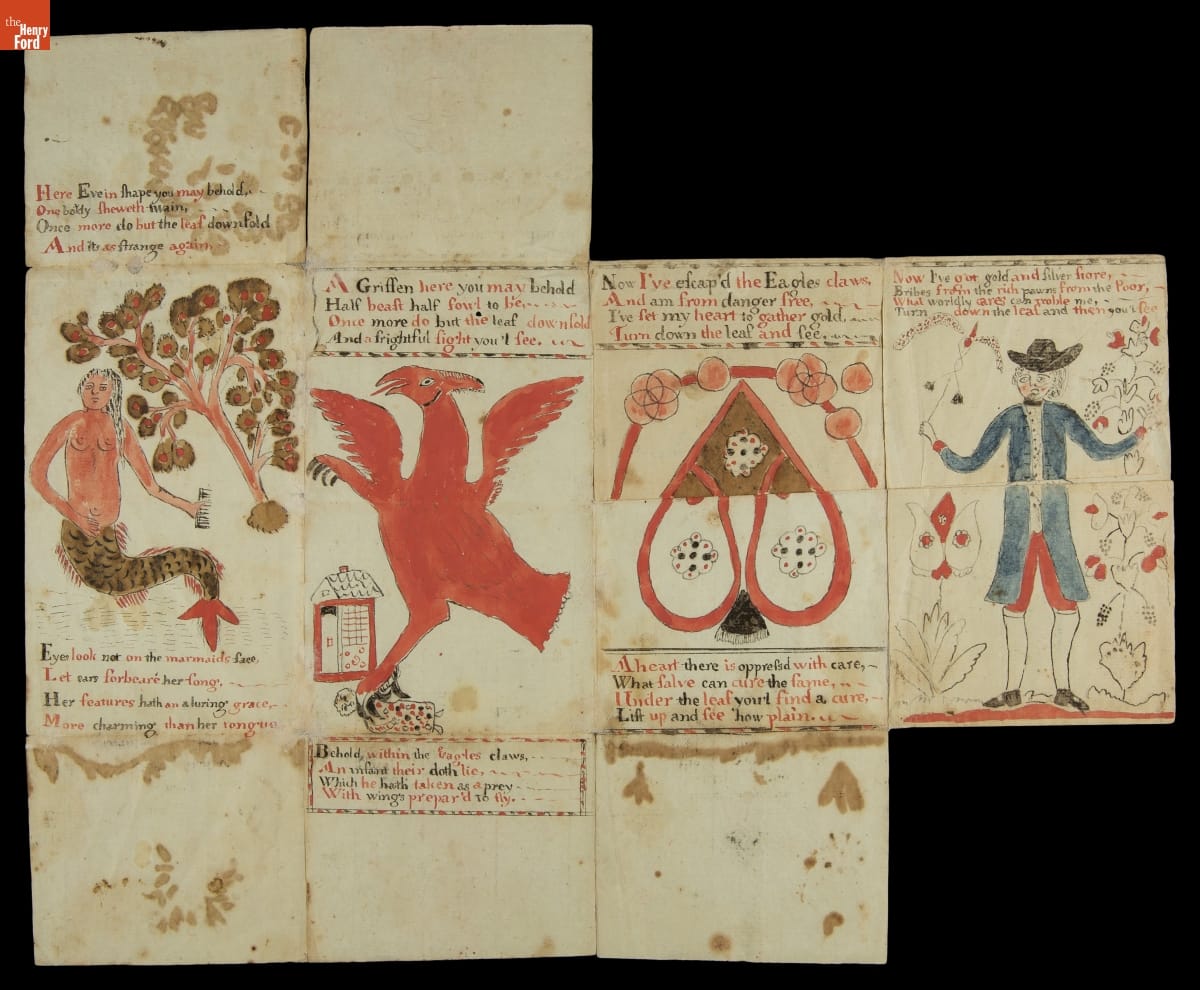 the
Henry
Ford
Here Eve in shape you may behold,
One body sheweth twain,
Once more do but the leaf downfold
And its as strange again.
Eyes look not on the marmaids face,
Let ears forbeare her song,
Her features hath an aluring grace,
More charming than her tongue
A Griffen here you may behold
Half beast half fowl to be,
Once more do but the leaf downfold
And a frightful sight you'l see.
Behold within the Eagles claws,
An infant their doth lie,
Which he hath taken as a prey
With wings prepar'd to fly.
Now I've escap'd the Eagles claws,
And am from danger free,
I've set my heart to gather gold,
Turn down the leaf and see,
A heart there is oppressd with care,
What salve can cure the same,
Under the leaf yourl find a cure,
Lift up and see how plain.
Now I've got gold and silver store,
Bribes from the rich pawns from the Poor,
What worldly cares can troble me,
Turn down the leaf and then you'l see